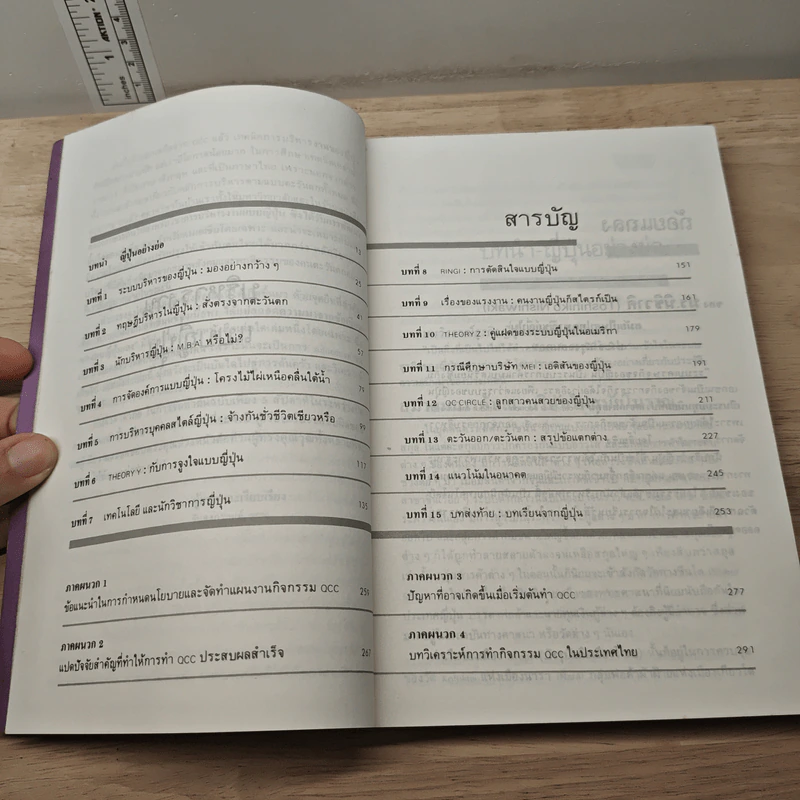 สารบัญ
บทนำ ญี่ปุ่นอย่างย่อ 13
บทที่ 1 ระบบบริหารของญี่ปุ่น : มองอย่างกว้าง ๆ 25
บทที่ 2 ทฤษฎีบริหารในญี่ปุ่น : สั่งตรงจากตะวันตก 41
บทที่ 3 นักบริหารญี่ปุ่น : M.B.A. หรือไม่? 57
บทที่ 4 การจัดองค์การแบบญี่ปุ่น : โครงไม้ไผ่เหนือคลื่นใต้น้ำ 79
บทที่ 5 การบริหารบุคคลสไตล์ญี่ปุ่น : จ้างกันชั่วชีวิตเชียวหรือ 99
บทที่ 6 THEORY Y : กับการจูงใจแบบญี่ปุ่น 117
บทที่ 7 เทคโนโลยี และนักวิชาการญี่ปุ่น 135
ภาคผนวก 1
ข้อแนะนำในการกำหนดนโยบายและจัดทำแผนงานกิจกรรม QCC 259
ภาคผนวก 2
แปดปัจจัยสำคัญที่ทำให้การทำ QCC ประสบผลสำเร็จ 267
บทที่ 8 RINGI : การตัดสินใจแบบญี่ปุ่น 151
บทที่ 9 เรื่องของแรงงาน : คนงานญี่ปุ่นก็สไตรก์เป็น 161
บทที่ 10 THEORY Z : คู่แฝดของระบบญี่ปุ่นในอเมริกา 179
บทที่ 11 กรณีศึกษาบริษัท MEI : เอดิสันของญี่ปุ่น 191
บทที่ 12 QC CIRCLE : ลูกสาวคนสวยของญี่ปุ่น 211
บทที่ 13 ตะวันออก/ตะวันตก : สรุปข้อแตกต่าง 227
บทที่ 14 แนวโน้มในอนาคต 245
บทที่ 15 บทส่งท้าย : บทเรียนจากญี่ปุ่น 253
ภาคผนวก 3
ปัญหาที่อาจเกิดขึ้นเมื่อเริ่มต้นทำ QCC 277
ภาคผนวก 4
บทวิเคราะห์การทำกิจกรรม QCC ในประเทศไทย 291